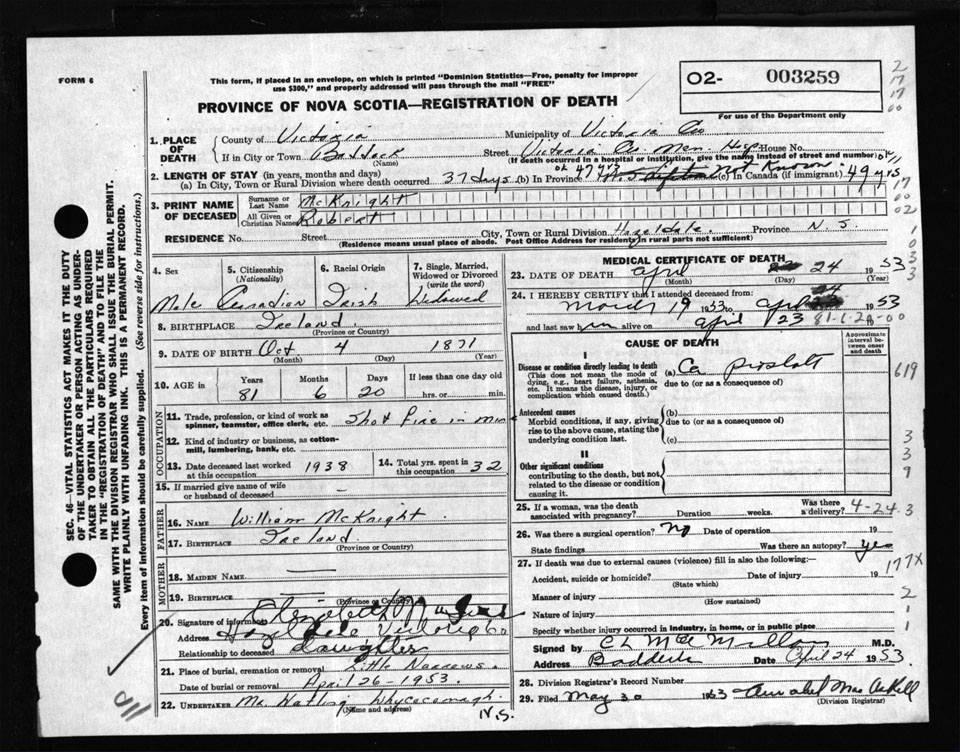 FORM 6
This form, if placed in an envelope, on which is printed "Dominion Statistics—Free, penalty for improper
use $300," and properly addressed will pass through the mail "FREE"
PROVINCE OF NOVA SCOTIA—REGISTRATION OF DEATH
O2- 003259
For use of the Department only
SEC. 46—VITAL STATISTICS ACT MAKES IT THE DUTY
OF THE UNDERTAKER OR PERSON ACTING AS UNDER-
TAKER TO OBTAIN ALL THE PARTICULARS REQUIRED
IN THE "REGISTRATION OF DEATH" AND TO FILE THE
SAME WITH THE DIVISION REGISTRAR WHO SHALL ISSUE THE BURIAL PERMIT.
WRITE PLAINLY WITH UNFADING INK. THIS IS A PERMANENT RECORD.
Every item of information should be carefully supplied. (See reverse side for instructions.)
1. PLACE OF DEATH
County of Victoria Municipality of Victoria Co
If in City or Town Baddeck Street Victoria Co Mem. Hosp House No.
(Name) (If death occurred in a hospital or institution, give the name instead of street and number)
2. LENGTH OF STAY (in years, months and days)
(a) In City, Town or Rural Division where death occurred 37 days (b) In Province 47 yrs Not Known (c) In Canada (if immigrant) 49 yrs
3. PRINT NAME OF DECEASED
Surname or Last Name McKnight
All Given or Christian Names Robert
RESIDENCE No. Street City, Town or Rural Division Hazeldale. Province N. S.
(Residence means usual place of abode. Post Office Address for residents in rural parts not sufficient)
4. Sex Male
5. Citizenship (Nationality) Canadian
6. Racial Origin Irish
7. Single, Married, Widowed or Divorced (write the word) Widowed
8. BIRTHPLACE Ireland.
(Province or Country)
9. DATE OF BIRTH Oct 4 1871
(Month) (Day) (Year)
10. AGE in Years 81 Months 6 Days 20 If less than one day old hrs. or min.
OCCUPATION
11. Trade, profession, or kind of work as spinner, teamster, office clerk, etc. Shot fire in mine
12. Kind of industry or business, as cotton-mill, lumbering, bank, etc.
13. Date deceased last worked at this occupation 1938
14. Total yrs. spent in this occupation 32
15. If married give name of wife or husband of deceased —
FATHER
16. NAME William McKnight.
17. BIRTHPLACE Ireland.
(Province or Country)
MOTHER
18. MAIDEN NAME —
19. BIRTHPLACE —
(Province or Country)
20. Signature of informant Elizabeth
Address Hazeldale Victoria Co
Relationship to deceased daughter
21. Place of burial, cremation or removal Little Narrows.
Date of burial or removal April 26-1953.
22. UNDERTAKER Whycocomagh. N.S.
(Name and address)
MEDICAL CERTIFICATE OF DEATH
23. DATE OF DEATH April 24 1953
(Month) (Day) (Year)
24. I HEREBY CERTIFY that I attended deceased from:
March 19 1953 to April 24 1953
and last saw him alive on April 23 81-6-20-00
CAUSE OF DEATH
Approximate interval between onset and death
I
Disease or condition directly leading to death
(This does not mean the mode of dying, e.g., heart failure, asthenia, etc. It means the disease, injury, or complication which caused death.)
(a) Ca prostatt
due to (or as a consequence of)
Antecedent causes
Morbid conditions, if any, giving rise to the above cause, stating the underlying condition last.
(b)
due to (or as a consequence of)
(c)
II
Other significant conditions
contributing to the death, but not related to the disease or condition causing it.
25. If a woman, was the death associated with pregnancy? Duration weeks. Was there a delivery? 4-24-3
26. Was there surgical operation? No Date of operation 19
State findings Was there an autopsy? Yes
27. If death was due to external causes (violence) fill in also the following:
Accident, suicide or homicide? Date of injury 19
(State which)
177X
Manner of injury
(How sustained)
Nature of injury
Specify whether injury occurred in industry, in home, or in public place
Signed by C L MacMillan M.D.
Address Baddeck Date April 24 1953.
28. Division Registrar's Record Number
29. Filed May 30 1953 Annabel MacAskill
(Division Registrar)